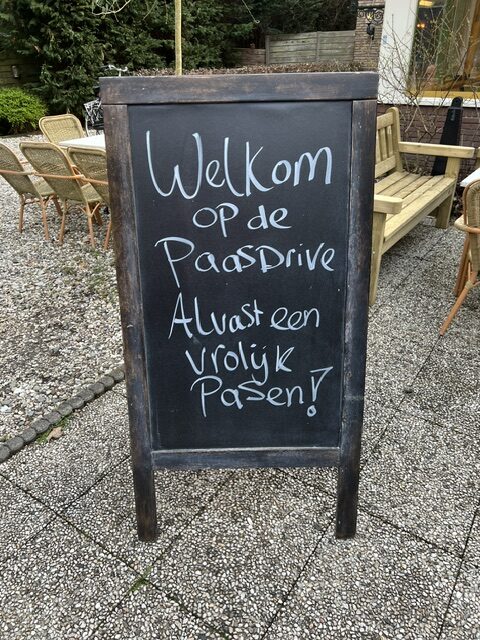 Welkom
op de
PaasDrive
Alvast een
vrolijk
Pasen!